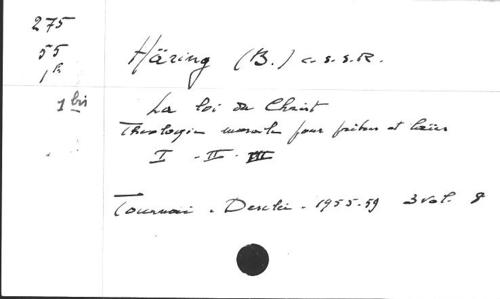 275
55
1 b
1 bis
Häring (B.) c.s.s.R.
La loi du Christ
Théologie morale pour prêtres et laïcs
I - II - III
Tournai - Desclée - 1955-59 3 vol. 8